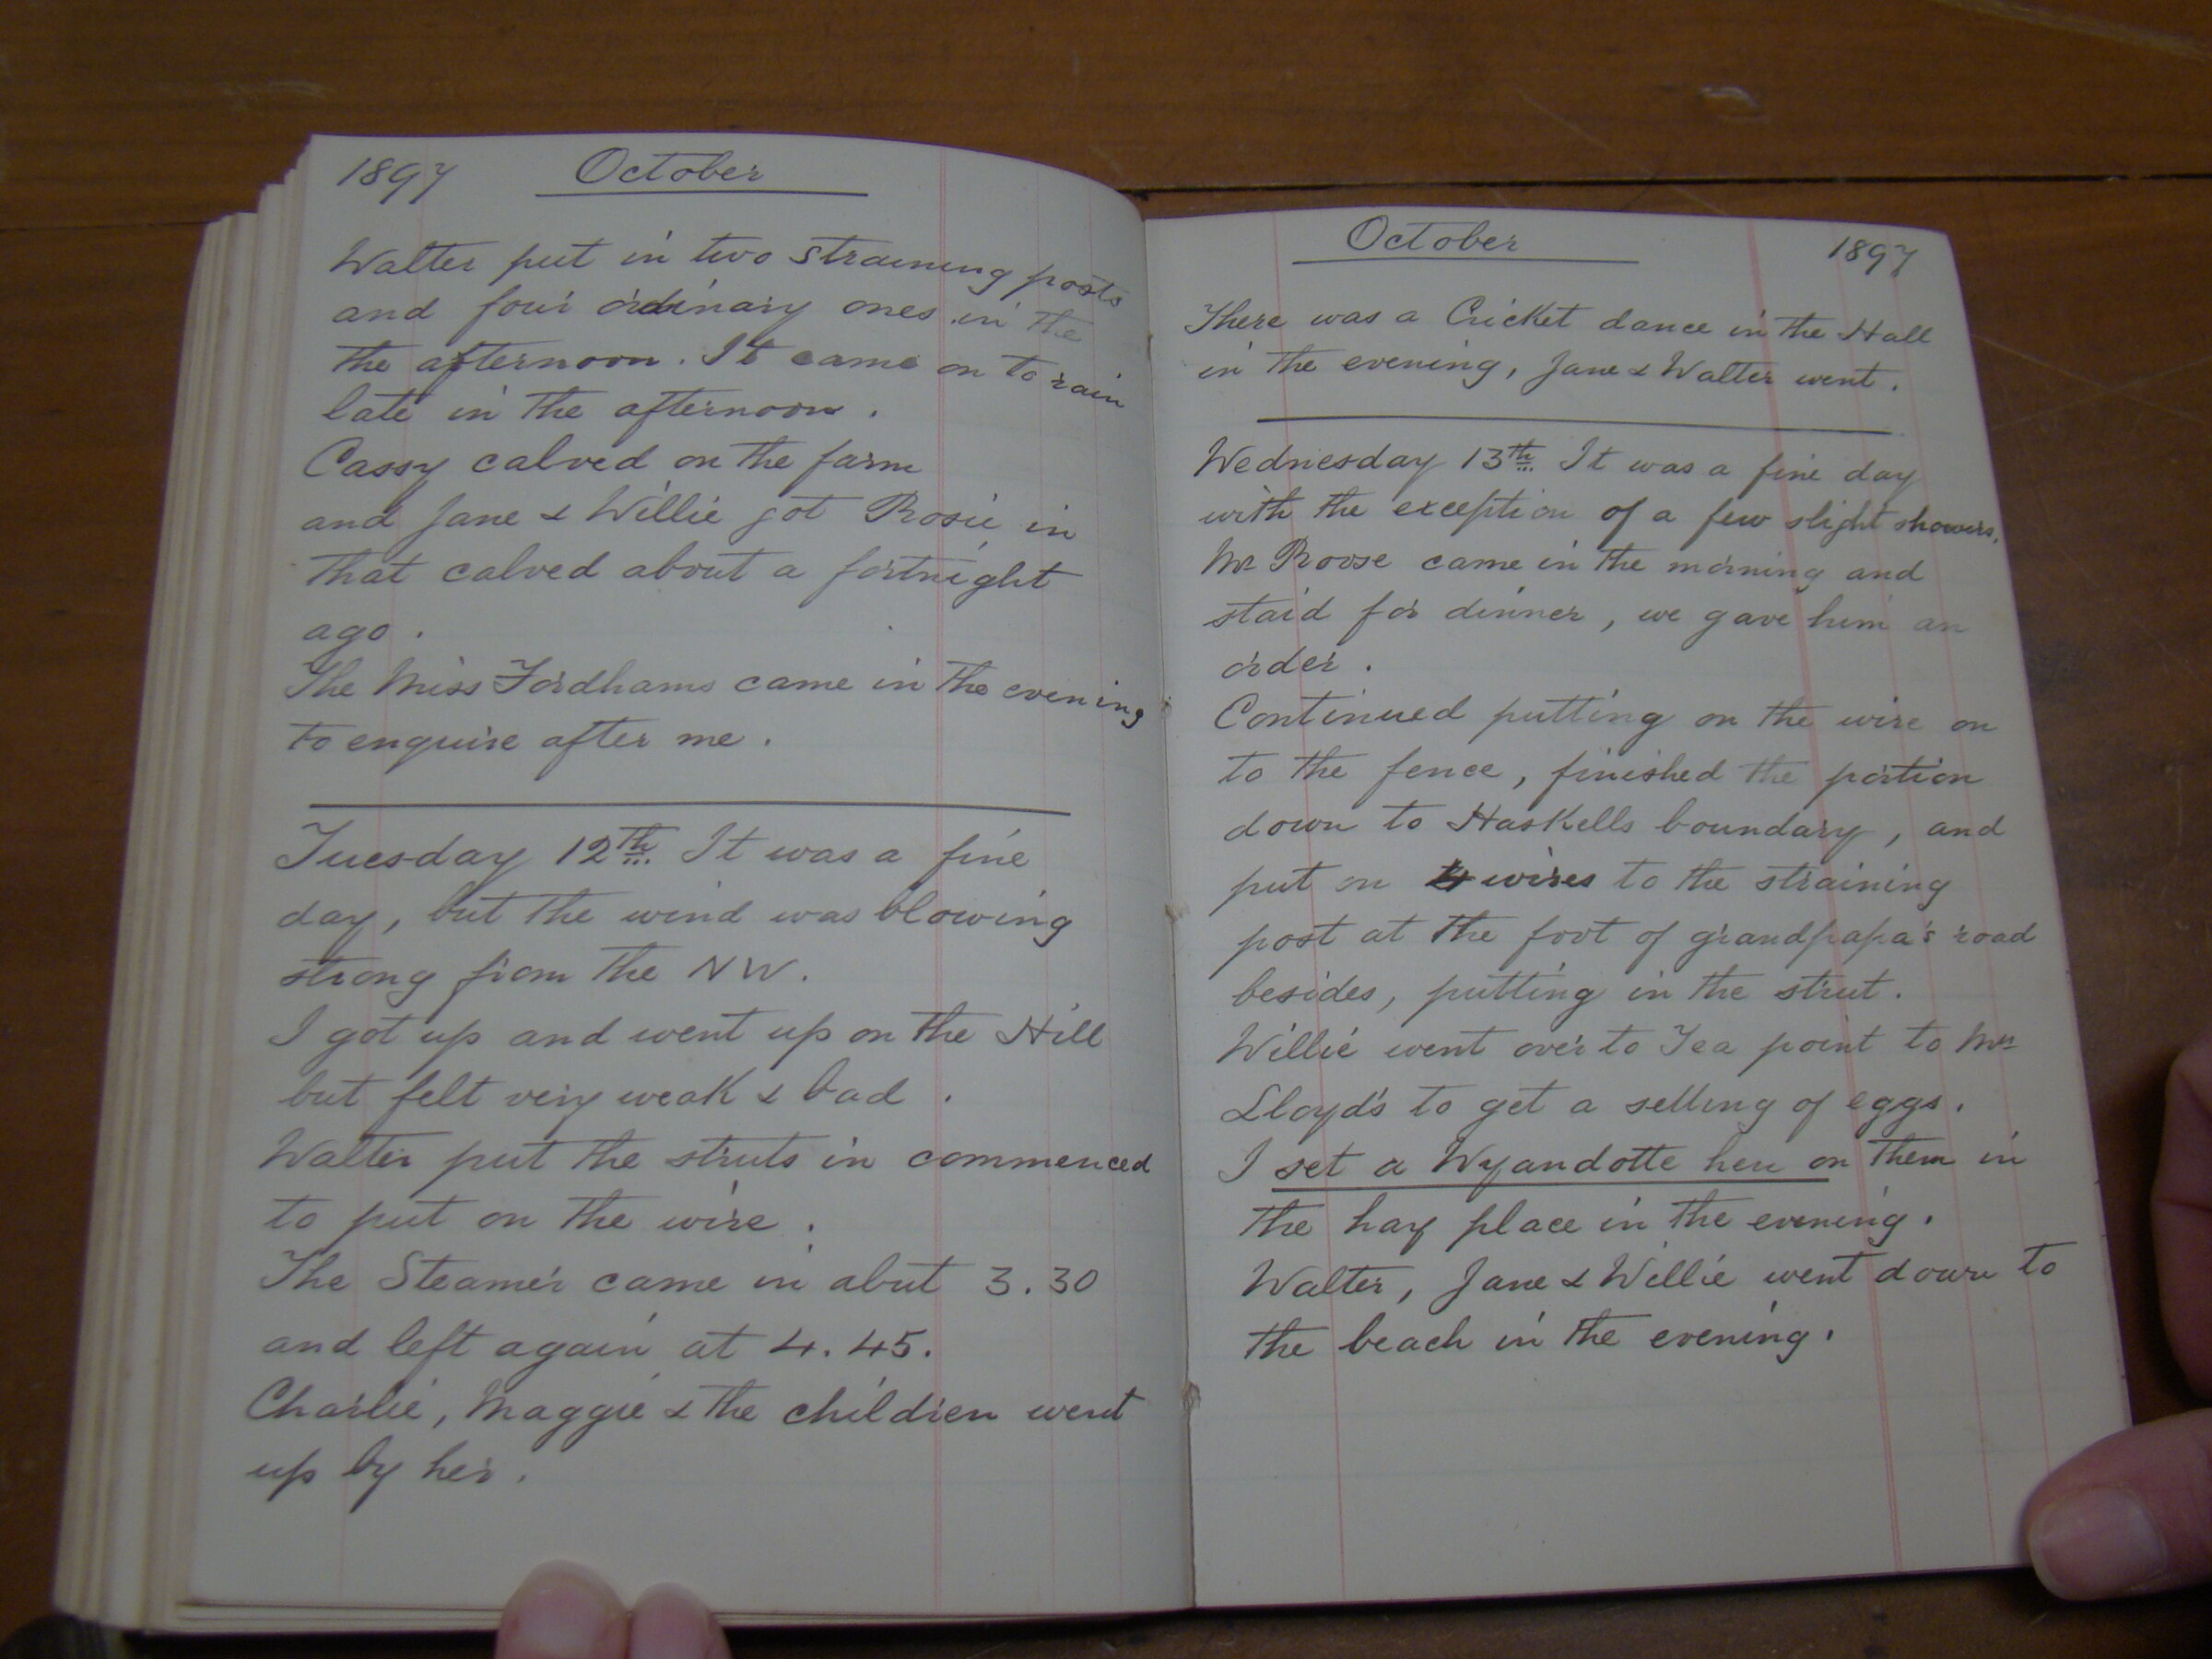 1897 October
Walter put in two straining posts
and four ordinary ones in the
the afternoon. It came on to rain
late in the afternoon.
Cassy calved on the farm
and Jane & Willie got Rosie in
that calved about a fortnight
ago.
The Miss Fordhams came in the evening
to enquire after me.
Tuesday 12th It was a fine
day, but the wind was blowing
strong from the NW.
I got up and went up on the Hill
but felt very weak & bad.
Walter put the struts in commenced
to put on the wire.
The Steamer came in abut 3.30
and left again at 4.45.
Charlie, Maggie & the children went
up by her.
October 1897
There was a Cricket dance in the Hall
in the evening, Jane & Walter went.
Wednesday 13th It was a fine day
with the exception of a few slight showers.
Mr Roose came in the morning and
staid for dinner, we gave him an
order.
Continued putting on the wire on
to the fence, finished the portion
down to Haskells boundary, and
put on 4 wires to the straining
post at the foot of grandpapa's road
besides, putting in the strut.
Willie went over to Tea point to Mrs
Lloyd's to get a setting of eggs.
I set a Wyandotte hen on them in
the hay place in the evening.
Walter, Jane & Willie went down to
the beach in the evening.